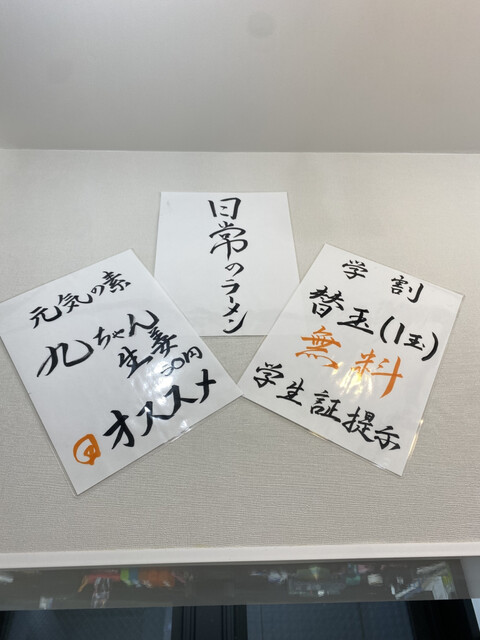 日常のラーメン
元気の素
九ちゃん
生姜
50円
オススメ
学割
替玉(1玉)
無料
学生証提示